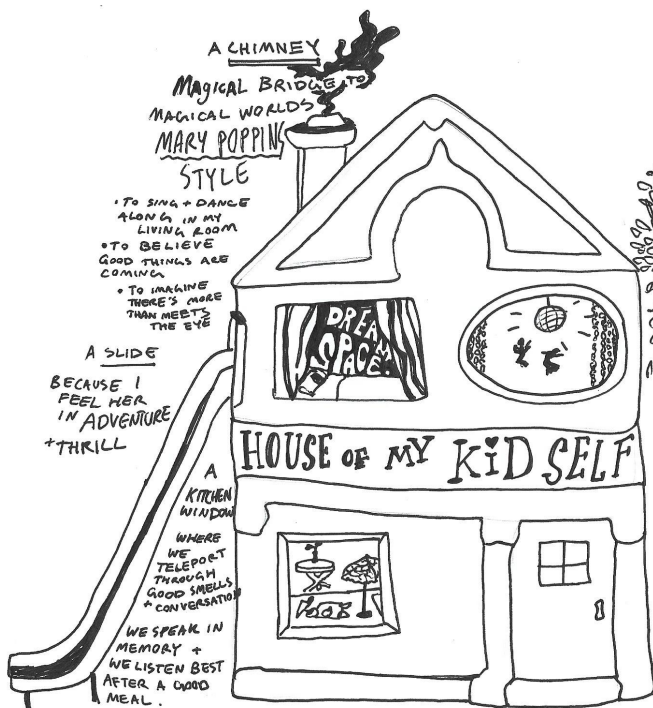 A CHIMNEY
MAGICAL BRIDGE TO
MAGICAL WORLDS
MARY POPPINS
STYLE
• TO SING + DANCE
ALONG IN MY
LIVING ROOM
• TO BELIEVE
GOOD THINGS ARE
COMING
• TO IMAGINE
THERE'S MORE
THAN MEETS
THE EYE
A SLIDE
BECAUSE I
FEEL HER
IN ADVENTURE
+ THRILL
DREAM
SPACE.
HOUSE OF MY KiD SELF
A
KITCHEN
WINDOW
WHERE
WE
TELEPORT
THROUGH
GOOD SMELLS
+ CONVERSATION
WE SPEAK IN
MEMORY +
WE LISTEN BEST
AFTER A GOOD
MEAL.